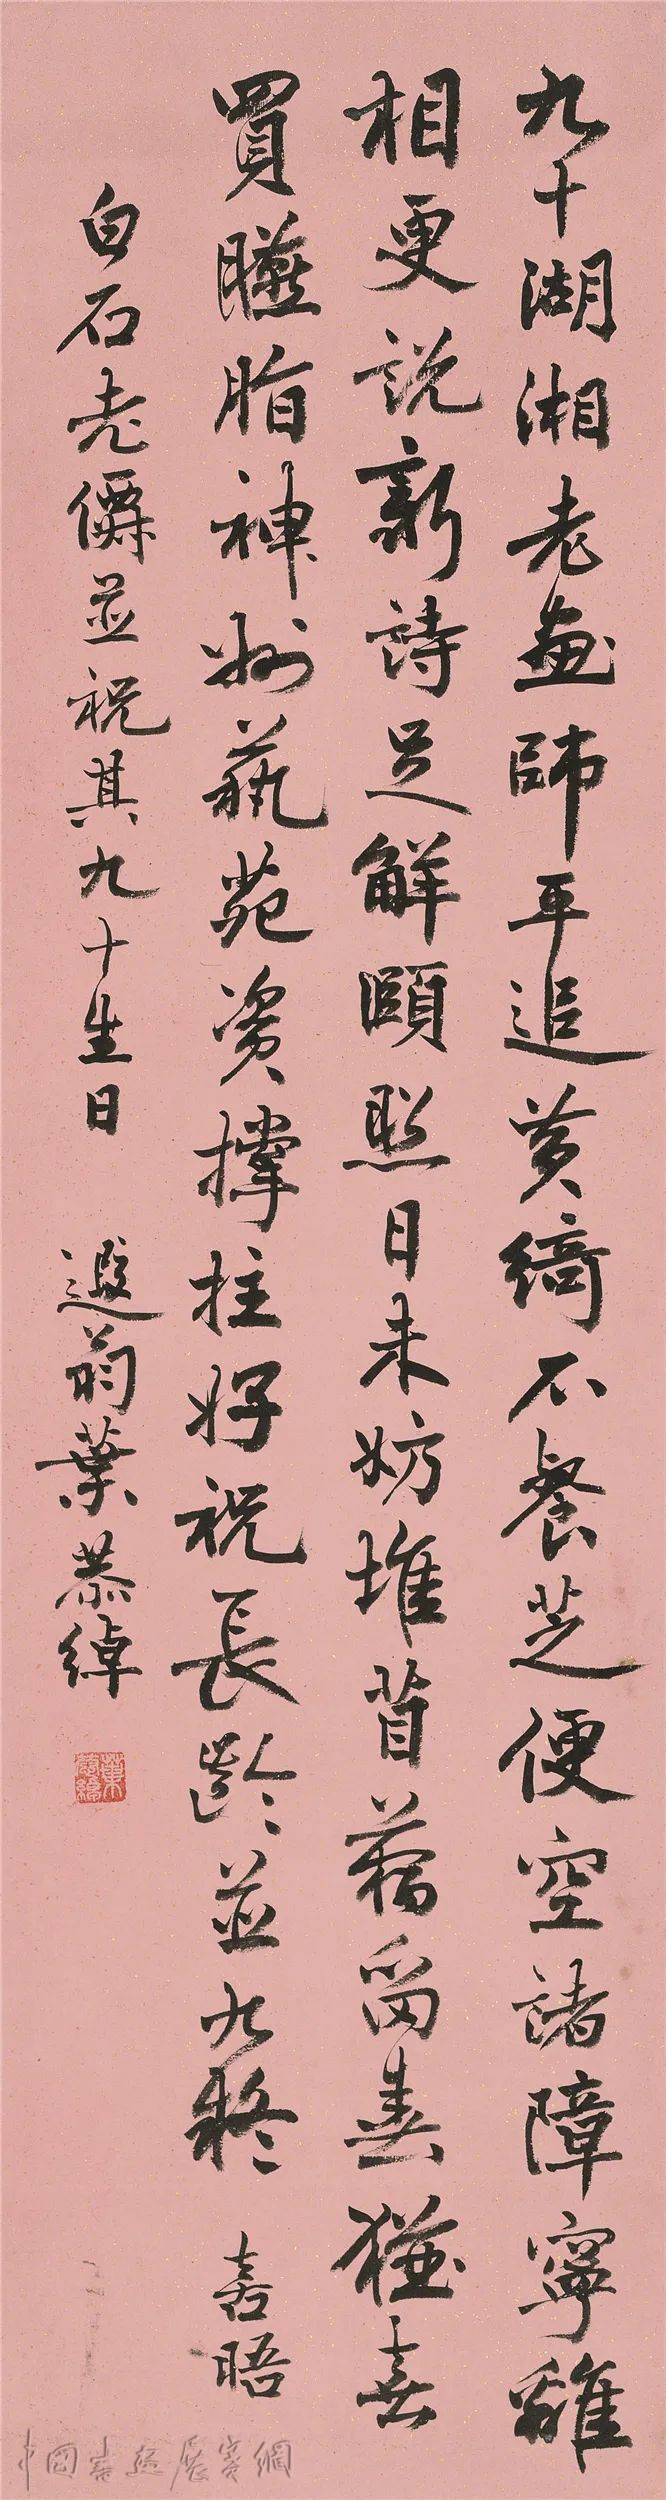 九十湖湘老畫師平追黃綺不餐芝便空諸障寧離
相更說新詩足解頤照日未妨堆苜蓿留春猶喜
買臙脂神州藝苑資撐拄好祝長齡並九疑 喜晤
白石老僊並祝其九十生日 遐翁葉恭綽
葉恭綽
中國書畫展賽網